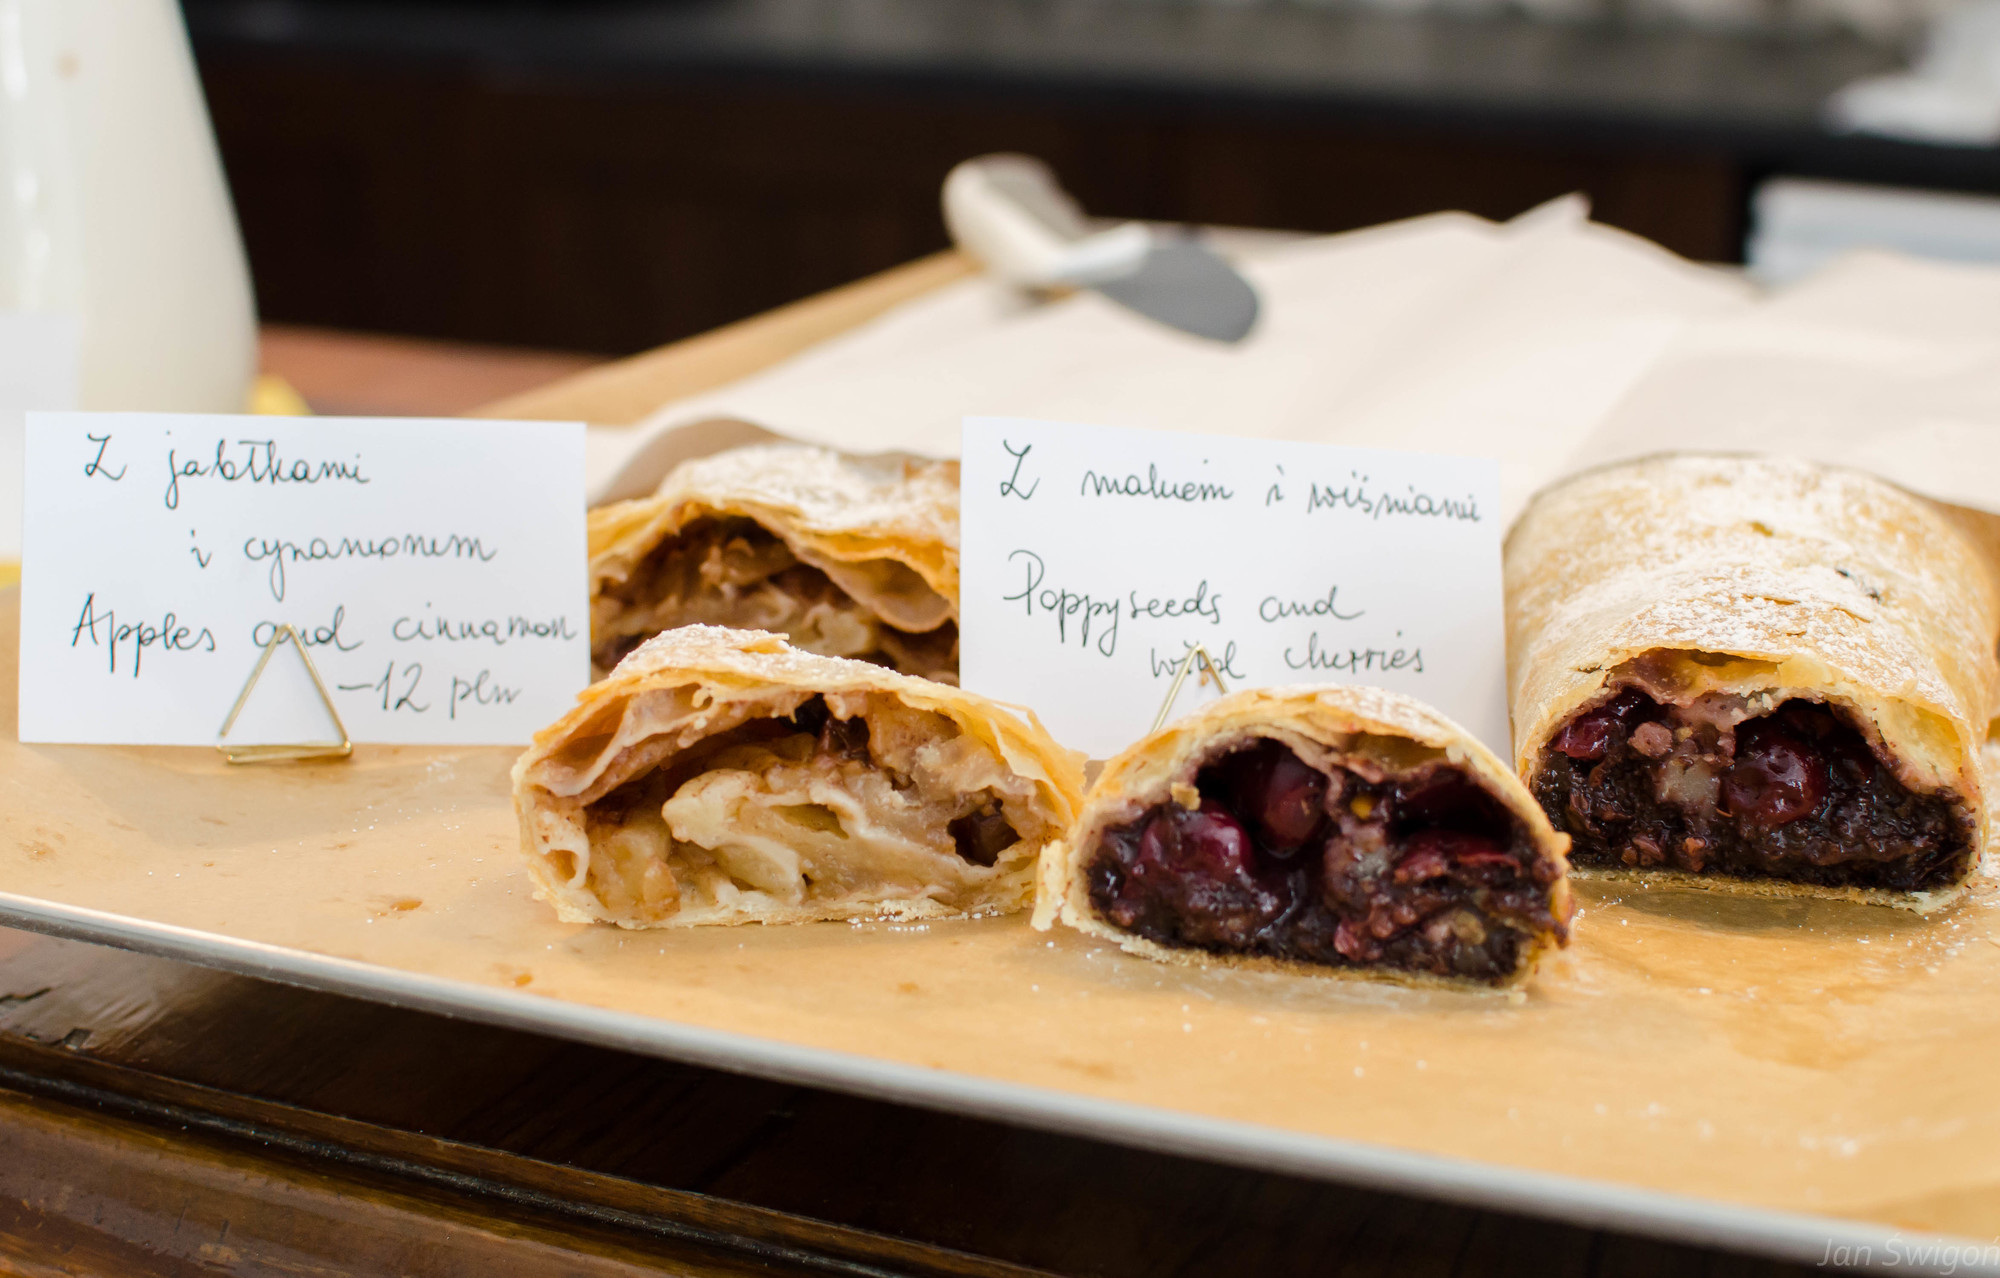 Z jabłkami
i cynamonem
Apples and cinnamon
-12 pln
Z makiem i wiśniami
Poppyseeds and
wild cherries
Jan Świgoń